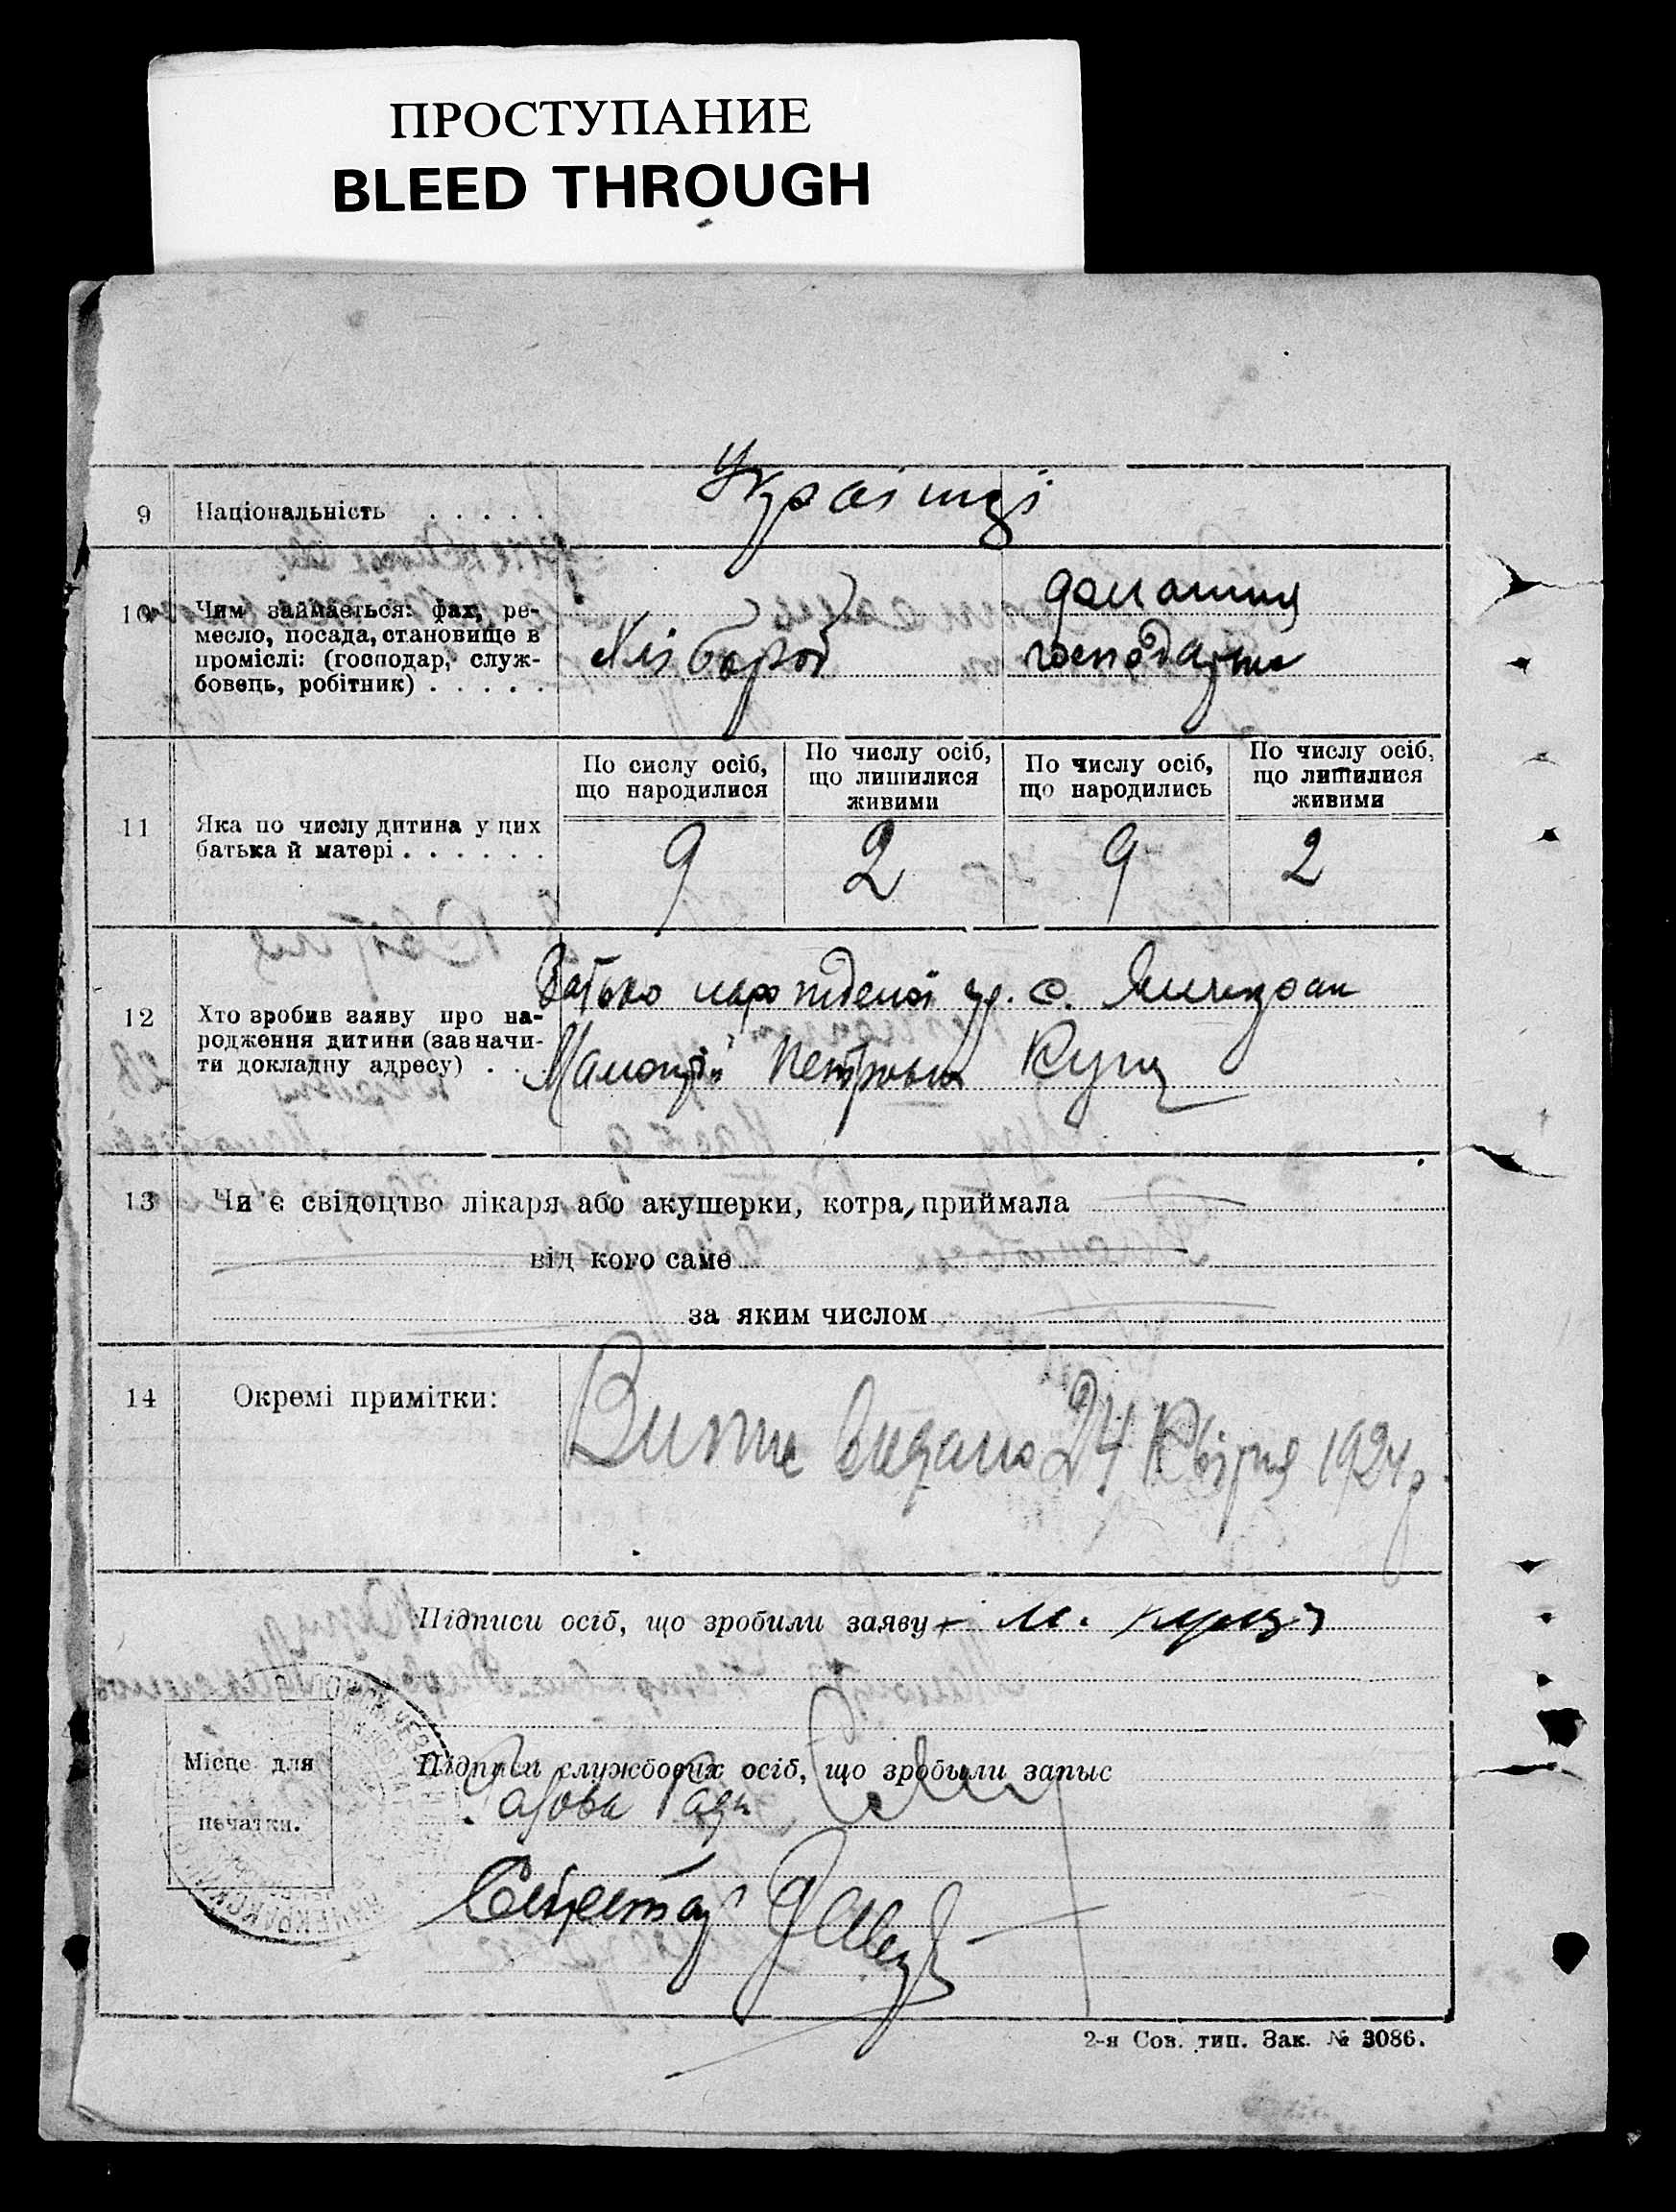 ПРОСТУПАНИЕ
BLEED THROUGH
9 Національність . . . . . Українці
10 Чим займається: фах, ре-
месло, посада, становище в
проміслі: (господар, служ-
бовець, робітник) . . . . .
Хлібороб
домашня
господарка
11 Яка по числу дитина у цих
батька й матері . . . . . .
По сислу осіб,
що народилися
9
По числу осіб,
що лишилися
живими
2
По числу осіб,
що народились
9
По числу осіб,
що лишилися
живими
2
12 Хто зробив заяву про на-
родження дитини (завначи-
ти докладну адресу) . . .
Батько народженої гр. с.
Петрович Куць
13 Чи є свідоцтво лікаря або акушерки, котра, приймала
від кого саме
за яким числом
14 Окремі примітки:
Витяг видано 24 Квітня 1924 р.
Підписи осіб, що зробили заяву М. Куць
Місце для
печатки.
Підписи службових осіб, що зробыли запыс
Голова Ради
Секретар
2-я Сов. тип. Зак. № 3086.